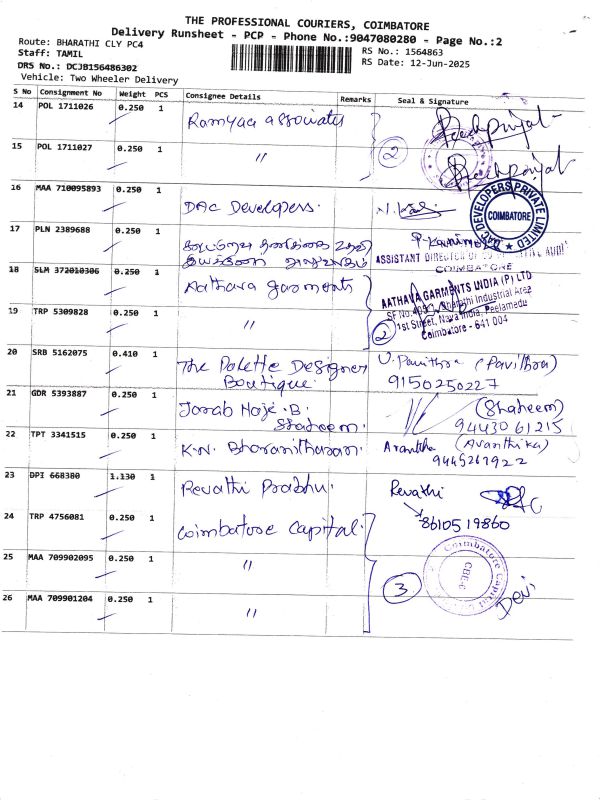 THE PROFESSIONAL COURIERS, COIMBATORE
Delivery Runsheet - PCP - Phone No.:9047080280 - Page No.:2
Route: BHARATHI CLY PC4
RS No.: 1564863
Staff: TAMIL
RS Date: 12-Jun-2025
DRS No.: DCJB156486302
Vehicle: Two Wheeler Delivery
S No Consignment No Weight PCS Consignee Details Remarks Seal & Signature
14 POL 1711026 0.250 1 Ramyaa associates
15 POL 1711027 0.250 1 〃 2
16 MAA 710095893 0.250 1 DAC Developers.
DAC DEVELOPERS PRIVATE LIMITED
COIMBATORE
17 PLN 2389688 0.250 1
ASSISTANT DIRECTOR OF
COIMBATORE
18 SLM 372010306 0.250 1 Aathava garments
AATHAVA GARMENTS INDIA (P) LTD
Bharathi Industrial Area
1st Street, Nava India, Peelamedu
Coimbatore - 641 004
19 TRP 5309828 0.250 1 〃 2
20 SRB 5162075 0.410 1 The Palette Designer
Boutique. U. Pavithra (Pavithra)
9150250227
21 GDR 5393887 0.250 1 Jorab Haje .B.
Shaheem. (Shaheem)
9443061215
22 TPT 3341515 0.250 1 K.N. Bharanitharan. Avanthika (Avanthika)
9445267922
23 DPI 668380 1.130 1 Revathi Prabhu. Revathi
8610519860
24 TRP 4756081 0.250 1 Coimbatore Capital.
Coimbatore Capital
25 MAA 709902095 0.250 1 〃 3
26 MAA 709901204 0.250 1 〃 Devi